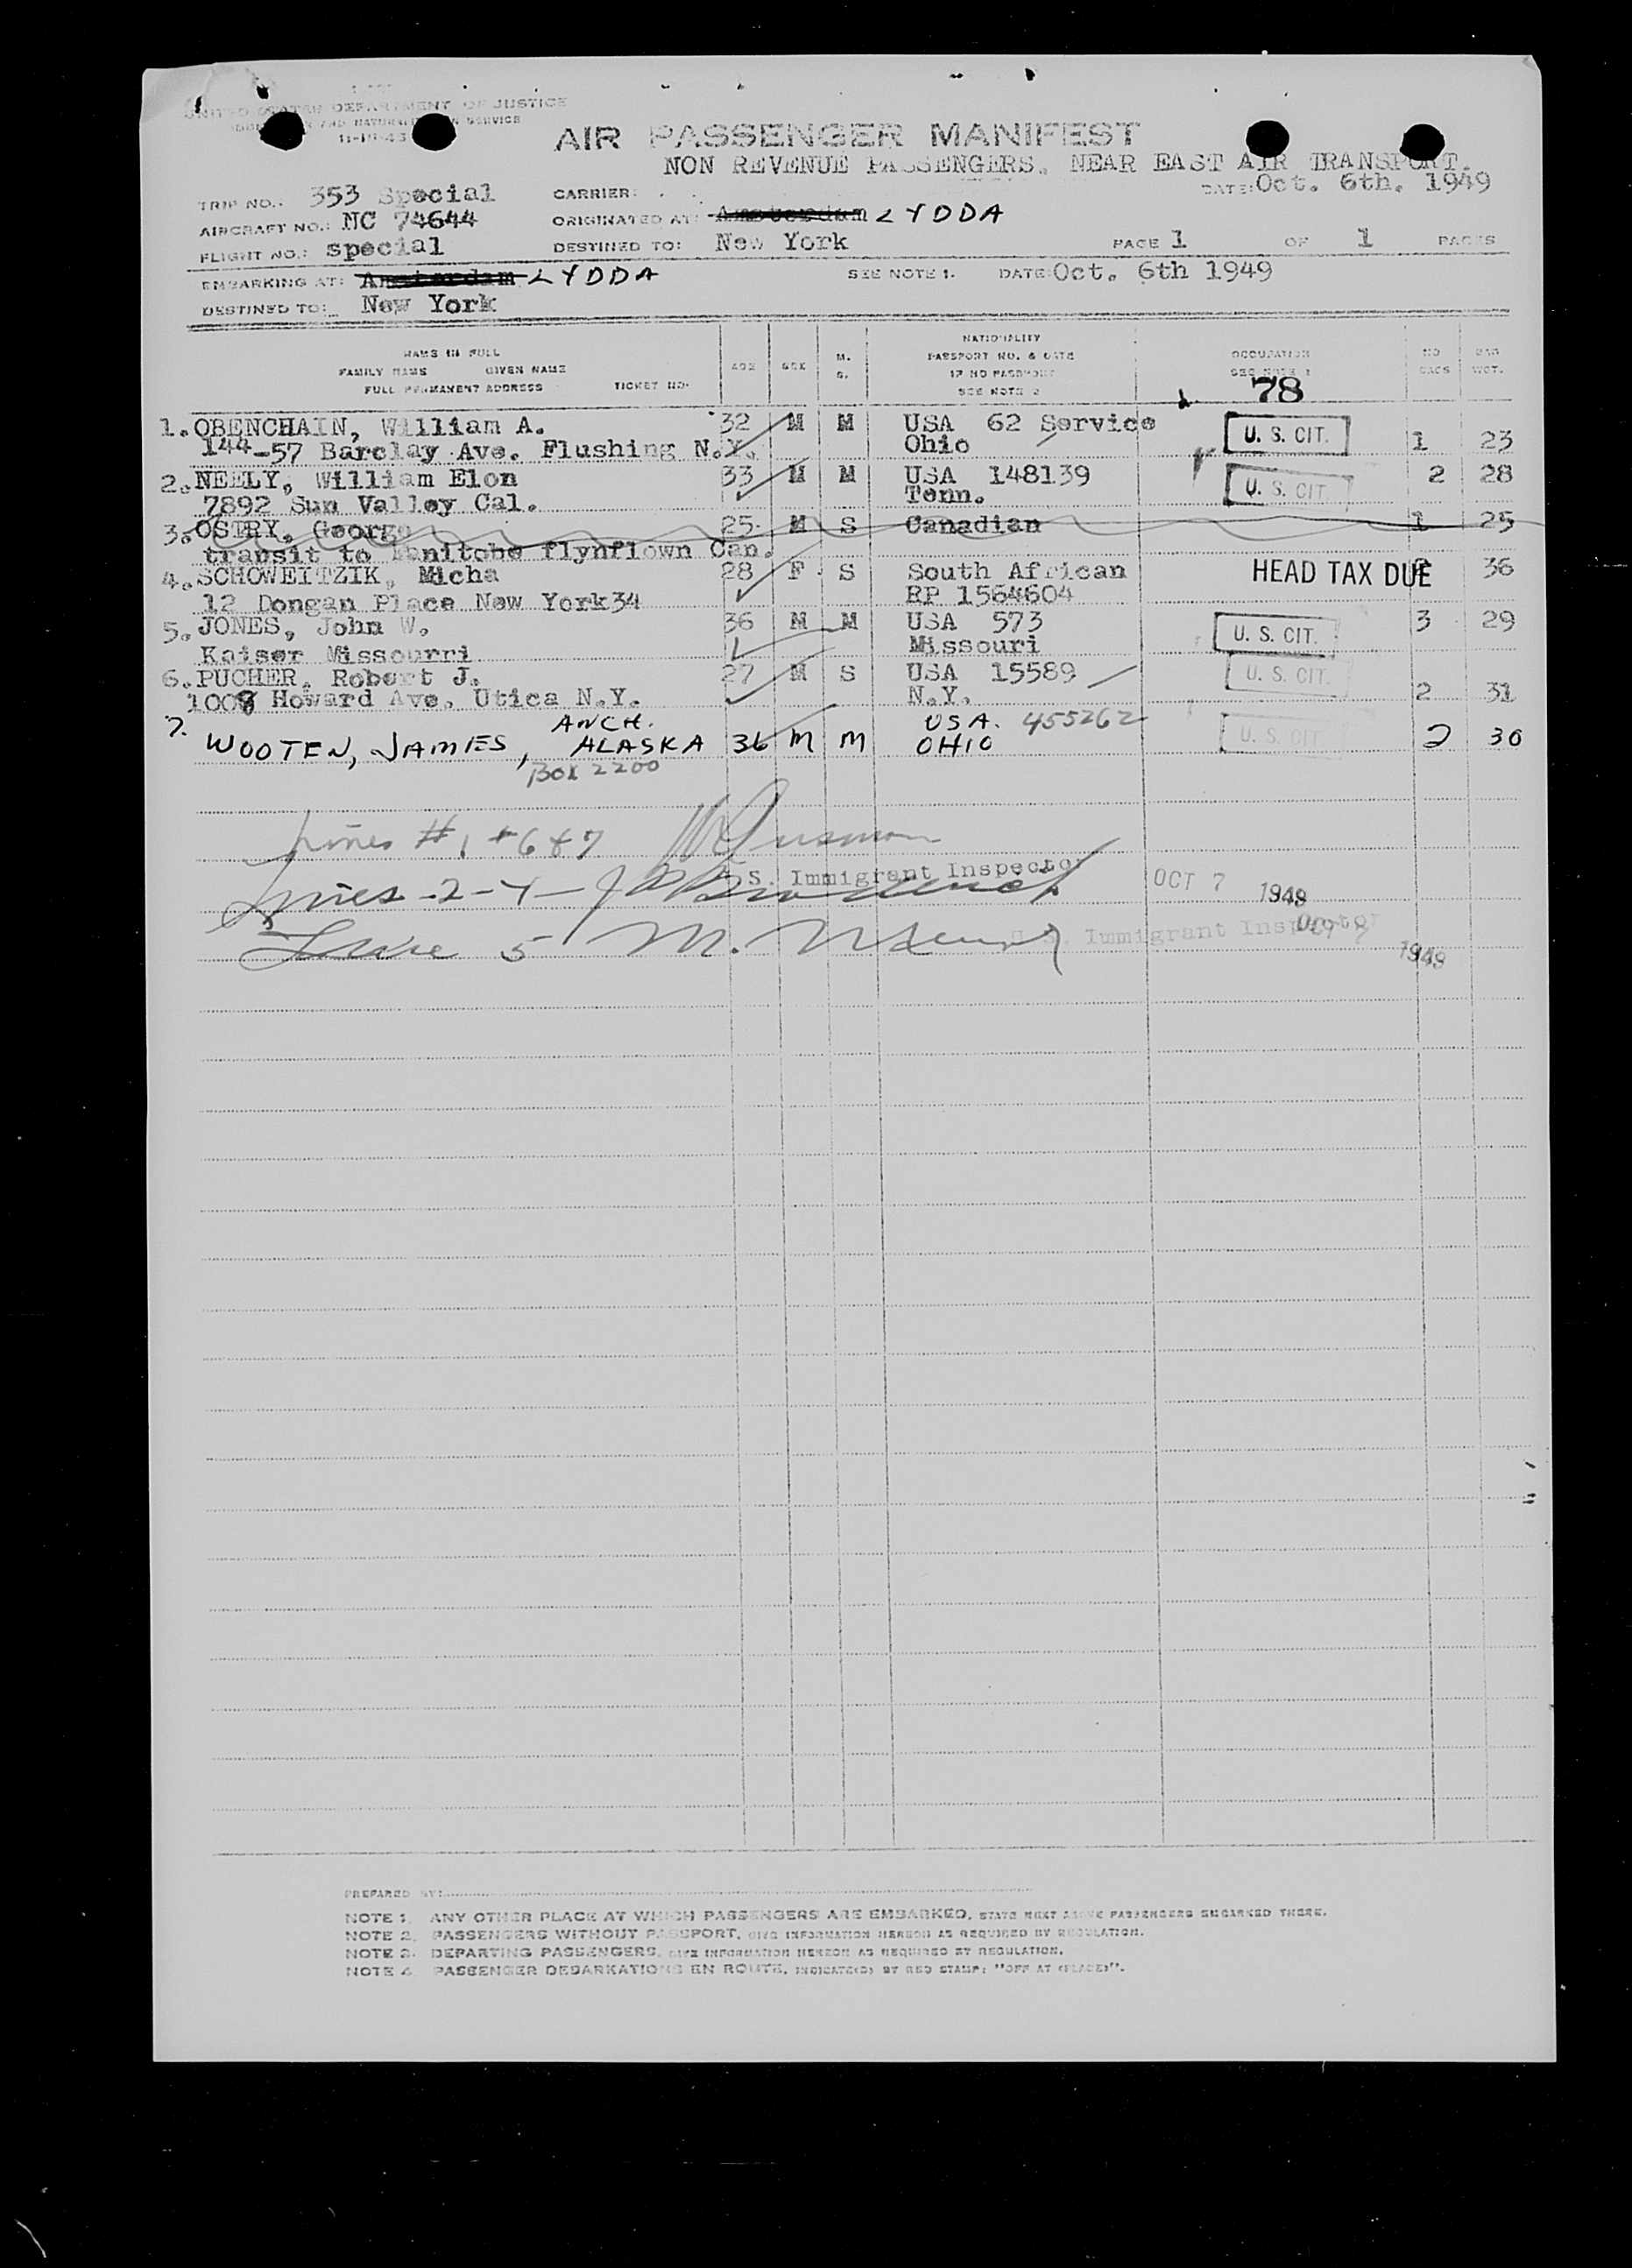 UNITED STATES DEPARTMENT OF JUSTICE
AND NATURALIZATION SERVICE
11-19-43
AIR PASSENGER MANIFEST
NON REVENUE PASSENGERS. NEAR EAST AIR TRANSPORT.
TRIP NO.: 353 Special CARRIER: DATE: Oct. 6th. 1949
AIRCRAFT NO.: NC 74644 ORIGINATED AT: Amsterdam LYDDA
FLIGHT NO.: special DESTINED TO: New York PAGE 1 OF 1 PAGES
EMBARKING AT: Amsterdam LYDDA SEE NOTE 1. DATE: Oct. 6th 1949
DESTINED TO: New York
NAME IN FULL
FAMILY NAME GIVEN NAME
FULL PERMANENT ADDRESS TICKET NO.
AGE SEX M. S.
NATIONALITY
PASSPORT NO. & DATE
IF NO PASSPORT
SEE NOTE 2
OCCUPATION
SEE NOTE
NO BAGS BAG WGT.
78
1. OBENCHAIN, William A. 32 M M USA 62 Service U. S. CIT. 1 23
144-57 Barclay Ave. Flushing N.Y. Ohio
2. NEELY, William Elon 33 M M USA 148139 U. S. CIT. 2 28
7892 Sun Valley Cal. Tenn.
3. OSTRY, George 25 M S Canadian 1 25
transit to Manitobe flynflown Can.
4. SCHOWEITZIK, Micha 28 F S South African HEAD TAX DUE 36
12 Dongan Place New York34 RP 1564604
5. JONES, John W. 36 M M USA 573 U. S. CIT. 3 29
Kaiser Missourri Missouri
6. PUCHER, Robert J. 27 M S USA 15589 U. S. CIT. 2 31
1008 Howard Ave. Utica N.Y. N.Y.
7. WOOTEN, JAMES, ANCH. ALASKA 36 M M USA. 455262 OHIO U. S. CIT. 2 30
BOX 2200
Lines #1 + 6 & 7
U. S. Immigrant Inspector OCT 7 1949
Lines -2-4-
Line 5 M.
U. S. Immigrant Inspector OCT 7 1949
PREPARED BY:
NOTE 1. ANY OTHER PLACE AT WHICH PASSENGERS ARE EMBARKED, STATE NEXT ABOVE PASSENGERS EMBARKED THERE.
NOTE 2. PASSENGERS WITHOUT PASSPORT, GIVE INFORMATION HEREON AS REQUIRED BY REGULATION.
NOTE 3. DEPARTING PASSENGERS, GIVE INFORMATION HEREON AS REQUIRED BY REGULATION.
NOTE 4. PASSENGER DEBARKATIONS EN ROUTE, INDICATE(D) BY RED STAMP: "OFF AT (PLACE)".